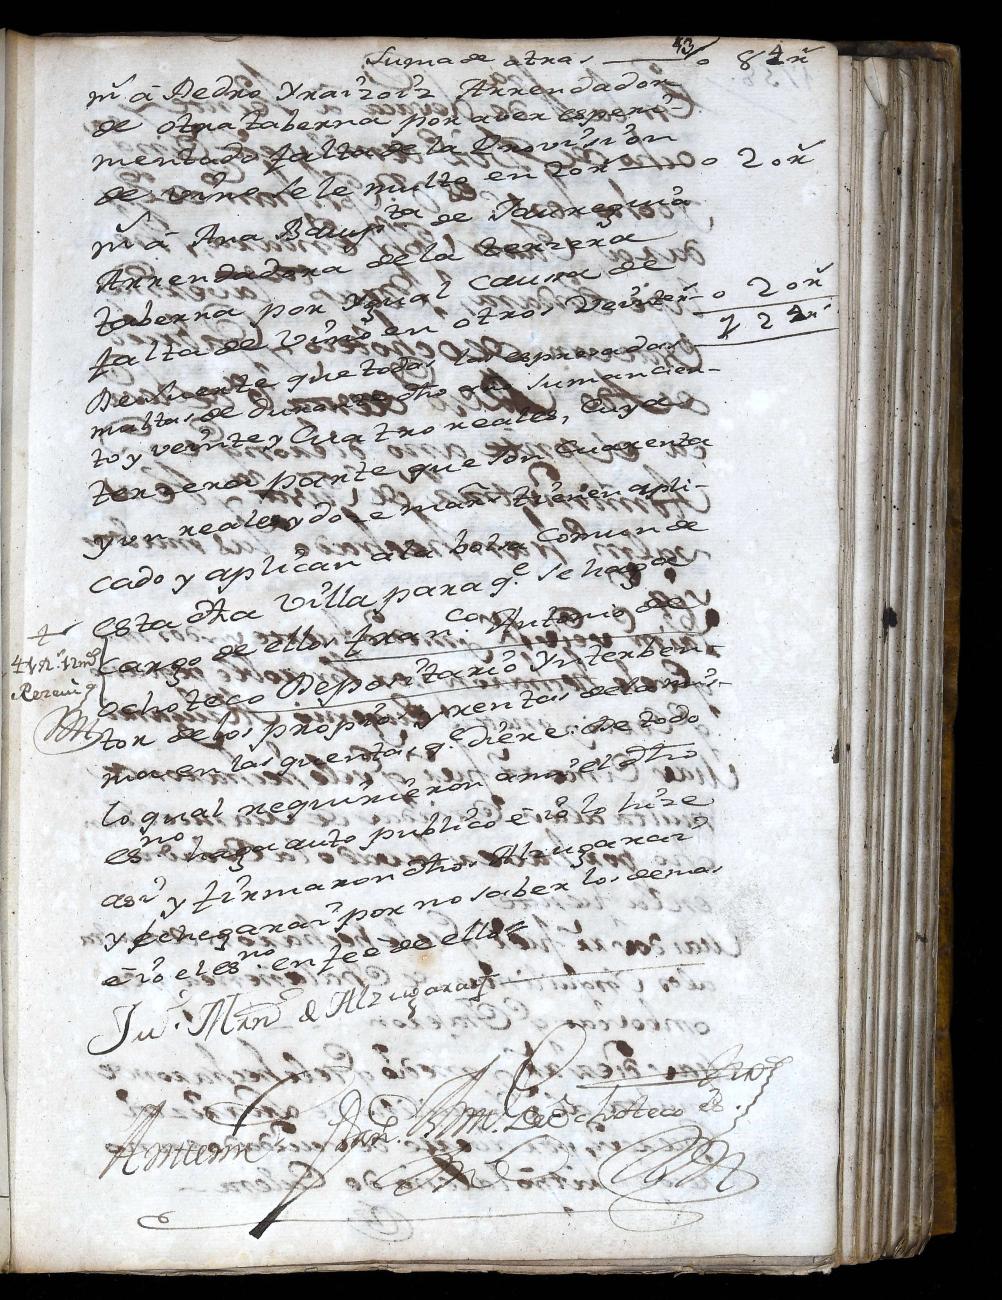 43
Suma de atras — o 84 rs
Yt á Pedro Yraizoiz Arrendador
de otra taberna por aber esperi-
mentado falta de la Provisión
de vino se le multo en 20 rs — o 20 rs
Yt á Ana Baup.ta de Jauregui
Arrendadora de la terzera
taberna por ygual causa de
falta de vino en otros veinte rs — o 20 rs
124 rs
De suerte que todas las espresadas
multas de suso suman cien-
to y veinte y Cuatro reales, cuya
terzera parte que son Cuarenta
y un reales y doze mars tienen apli-
cado y aplican a la bolsa Comun de
esta dha Villa para q.e se haga
cargo de ellos Fran.co Antonio de
41 rs 12 ms
Ochoteco Depositario Ynterben-
tor de los propios y rentas de la mis-
ma en las quentas q.e diere: De todo
lo qual requirieron a mi el dho
es.no haga auto publico e yo lo hize
asi y firmaron dhos Alzugarai
y Echegarai por no saber los demas
e yo el es.no en fee de ello
Ju.o Mrn de Alzugarai
Ante mi Ju.n Bap.ta de Ochoteco es.no